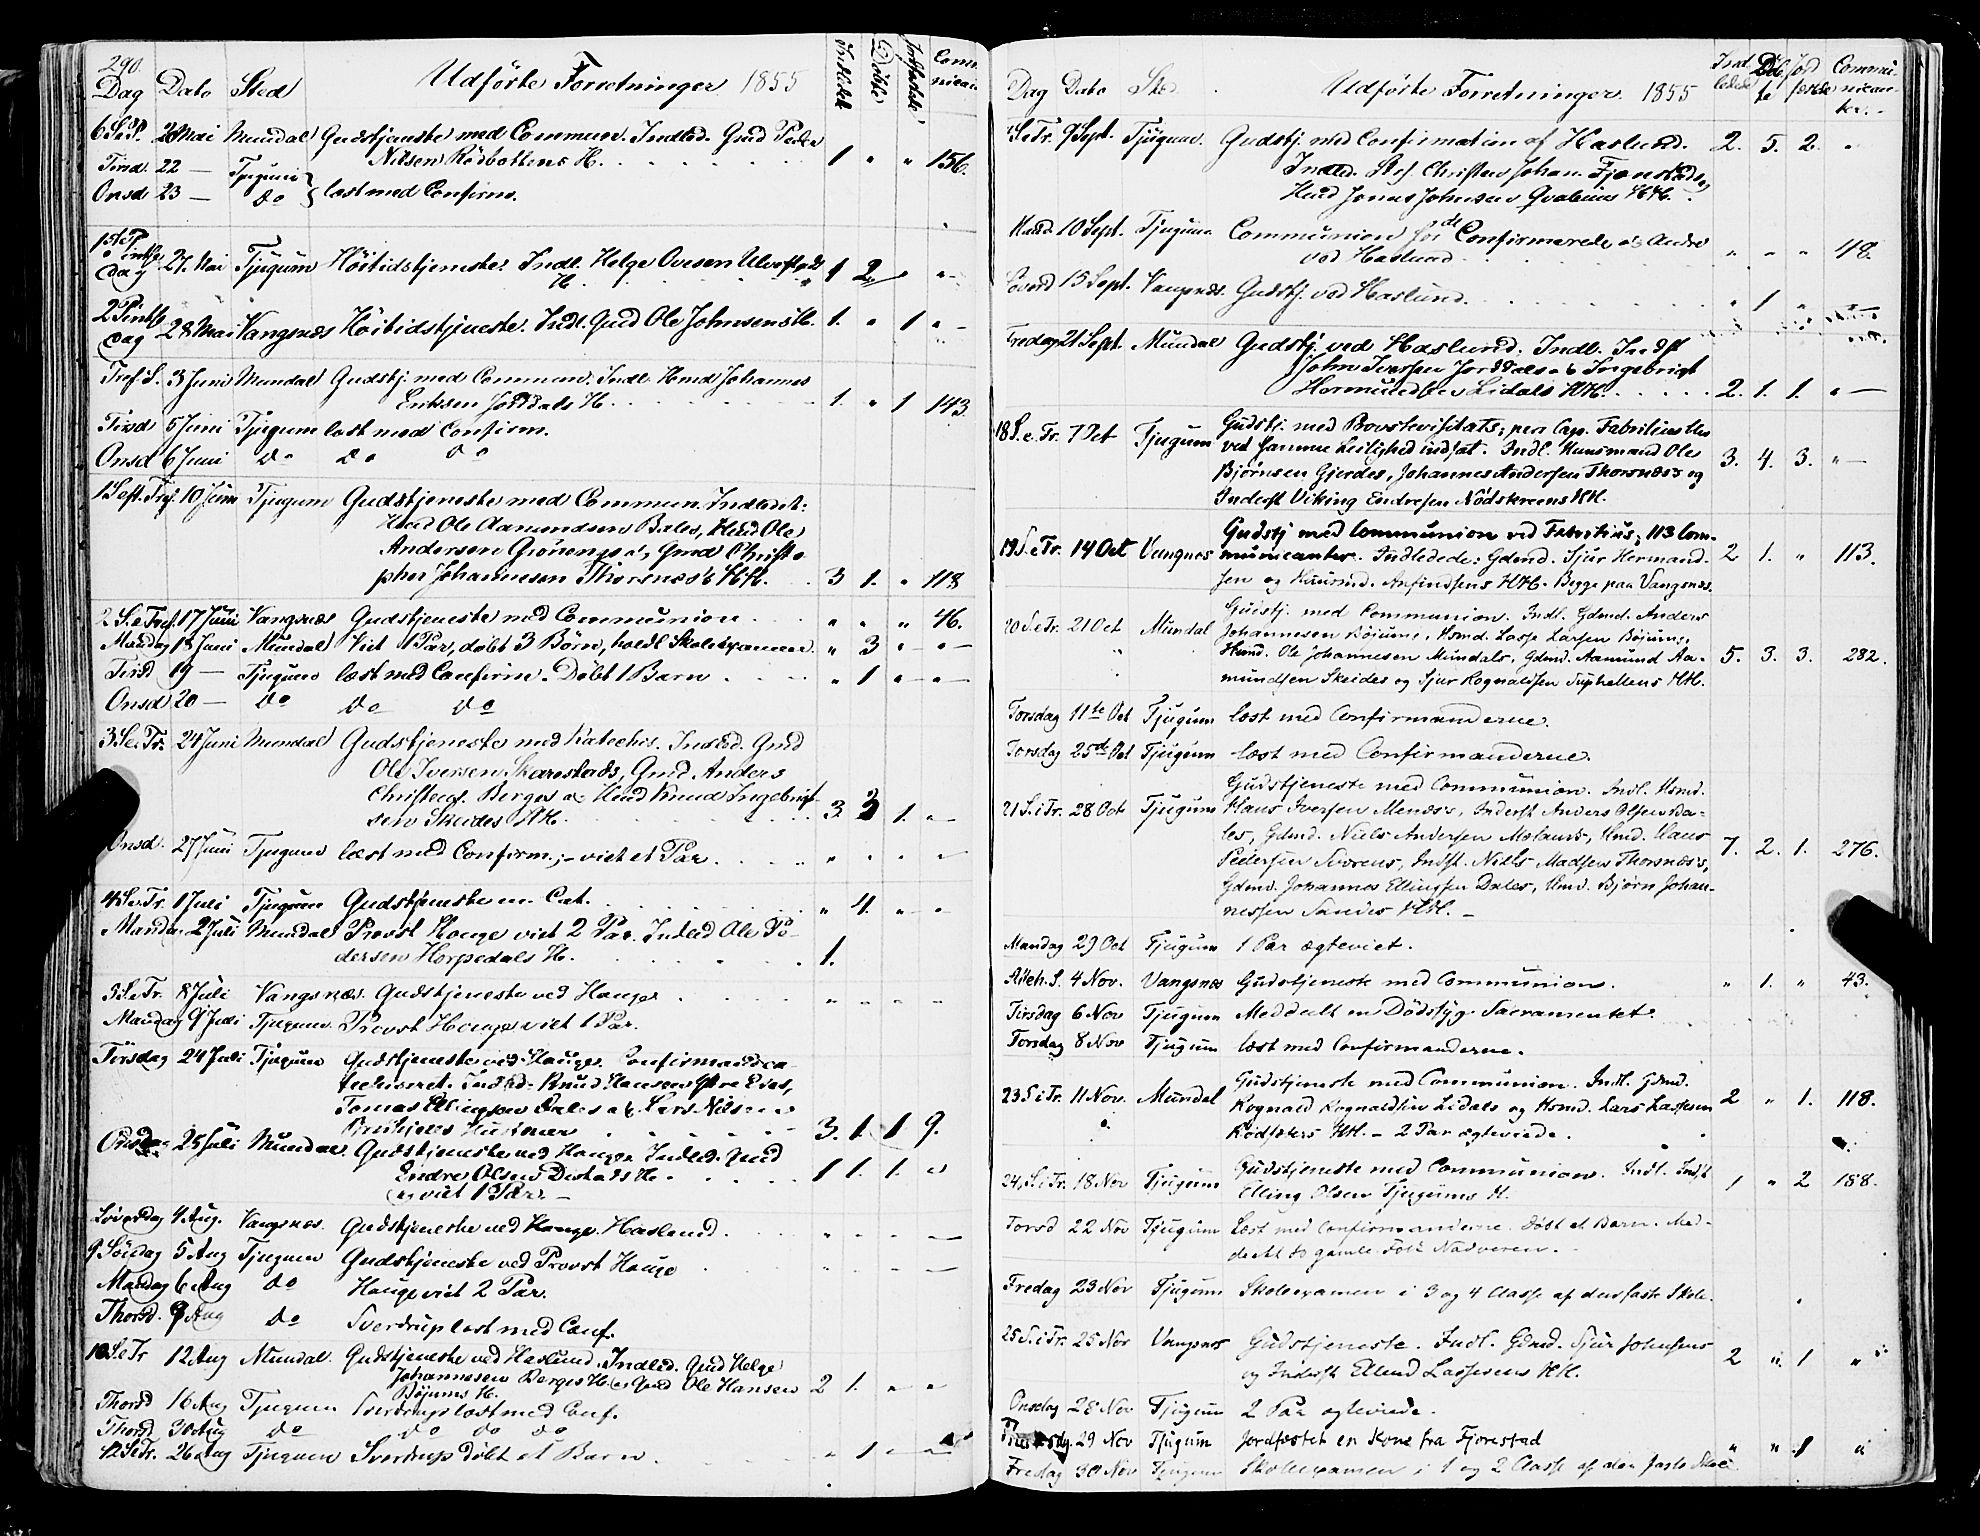 290.
Dag Dato Sted Udførte Forretninger 1855 Indledte Døbte Jordfæstede Communican
6 S. e. P. 20 Mai Mundal Gudstjeneste med Commun. Indled. Gmd Peder
Nilsen Rødbottens H. 1 " " 156.
Tirsd. 22 — Tjugum
Onsd 23 — do læst med Confirm.
1ste Pintse
dag 27. Mai Tjugum Höitidstjeneste. Indl. Helge Ovesen Ulvestads
H. 1 2 " "
2 Pintse
dag 28 Mai Vangsnæs Höitidstjeneste. Indl. Gmd Ole Johnsens H. 1. " 1 " –
Tref. S. 3 Juni Mundal Gudstj. med Commun. Indl. Hmd Johannes
Eriksen Jorddals H. 1. " 1 143
Tirsd 5 Juni Tjugum læst med Confirm.
Onsd 6 Juni do do do
1 S. eft. Tref. 10 Juni Tjugum Gudstjeneste med Commun. Indledt:
Hmd Ole Aamundsen Bales, Hmd Ole
Andersen Grönengs og Gmd Christo
pher Johannesen Thorsnæs's HH. 3 1. " 118
2 S. e. Tref. 17 Juni Vangsnæs Gudstjeneste med Communion " " " 46.
Mandag 18 Juni Mundal Viet 1 Par, döbt 3 Börn, holdt Skoleexamen. " 3 " " –
Tirsd 19 — Tjugum læst med Confirm. Döbt 1 Barn " 1 " " –
Onsd 20 — do do do
3 S. e. Tr. 24 Juni Mundal Gudstjeneste med Katechis. Indled. Gmd
Ole Iversen Skarestads, Gmd. Anders
Christens. Berges og Hmd Knud Ingebrigt-
sen Skeides HH. 3 3 1. " –
Onsd. 27 Juni Tjugum læst med Confirm.; – viet et Par. " " " "
4 S. e. Tr. 1 Juli Tjugum Gudstjeneste m. Cat. " 4. " "
Mandag 2 Juli Mundal Provst Hauge viet 2 Par. Indled Ole Pe-
dersen Horpedals H. 1.
S. e. Tr. 8 Juli Vangsnæs. Gudstjeneste ved Hauge " " " "
Mandag 9 Juli Tjugum Provst Hauge viet 1 Par.
Tirsdag 24 Juli Tjugum Gudstjeneste ved Hauge. Confirmandca-
techiseret. Indled: Knud Hansen
Tomas Ellingsen Dales og Lars Nilsen
Hustruer 3. 1. 1 9.
Onsdag 25 Juli Mundal. Gudstjeneste ved Hauge. Indled. Gmd
Endre Olsen H. 1 1. 1. "
og viet 1 Par. –
Löverdag 4 Aug. Vangsnæs. Gudstjeneste ved Hauge. Haslund. " " " "
9 Söndag 5 Aug Tjugum Gudstjeneste ved Provst Hauge " " " "
Mandag 6 Aug do Hauge viet 2 Par.
Thorsd. 9 Aug do Sverdrup læst med Conf.
10 S. e Tr 12 Aug Mundal. Gudstjeneste ved Haslund. Indled. Gmd Helge
Johannesen Berges H. og Gmd Ole Hansen
Böjums H. 2 1. " "
Thorsd 16 Aug Tjugum Sverdrup læst med Conf.
Thorsd 30 Aug do do do do
12 S e Tr. 26 Aug Tjugum Sverdrup döbt et Barn. " 1 " –
Dag Dato Sted Udførte Forretninger. 1855 Indledede Döbte Jordfæstede Communicanter.
S. e Tr. 9 Sept. Tjugum. Gudstj. med Confirmation af Haslund. 2. 5. 2. "
Indled. Christen Johan. Fjærestads og
Hmd Jonas Johnsen HH.
Mand. 10 Sept. Tjugum Communion for de Confirmerede og Andre
ved Haslund " " " 48.
Löverd 15 Sept. Vangsnæs. Gudstj. ved Haslund. " 1 " "
Fredag 21 Sept. Mundal Gudstj. ved Haslund. Indl. Indst
John Iversen Jorddals og Ingebrigt
Hermundsen Lidals HH. 2. 1. 1. " —
18 S. e. Tr. 7 Oct Tjugum Gudstj. med Provstevisitats; pers. Cap. Fabritius blev
ved samme Leilighed indsat. Indl. Huusmand Ole
Björnsen Gjerdes, Johannes Andersen Thorsnæs's og
Inderst Viking Endresen Nödskreens HH. 3. 4. 3. " –
19 S. e. Tr. 14 Oct Vangnes Gudstj med Communion ved Fabritius; 113 Com-
municanter. Indledede: Gdmd. Sjur Hermund-
sen og Huusmd. Anfindsens HH. Begge paa Vangsnæs. 2 1. " 113.
20 S. e. Tr. 21 Oct Mundal Gudstj. med Communion. Indl. Gdmd. Anders
Johannesen Böjums, Hsmd. Lasse Larsen Böjums,
Husmd. Ole Johannesen Mundals, Gdmd. Aamund Aa-
mundsen Skeides og Sjur Rognaldsen Suphellens HH. 5. 3. 3. 282.
Torsdag 11te Oct Tjugum læst med Confirmanderne.
Torsdag 25de Oct Tjugum læst med Confirmanderne.
21 S. i Tr. 28 Oct Tjugum Gudstjeneste med Communion. Indl. Hsmd.
Hans Iversen Menæs's, Inderst Anders Olsen Ba-
les, Gdmd. Niels Andersen Mælands, Hmd. Hans
Pedersen Svorens, Indst. Niels Madsen Thorsnæs's,
Gdmd. Johannes Ellingsen Dales, Hmd. Björn Johan-
nessen Sandes HH. – 7. 2. 1. 276.
Mandag 29 Oct Tjugum 1 Par ægteviet.
Alleh. S. 4 Nov. Vangsnes Gudstjeneste med Communion. " 1. " 43.
Tirsdag 6 Nov Tjugum Meddeelt en Dödssyg Sacramentet
Torsdag 8 Nov Tjugum læst med Confirmanderne.
23 S. i Tr. 11 Nov. Mundal Gudstjeneste med Communion. Indl. Gdmd.
Rognald Rognaldsen Lidals og Hsmd. Lars Lassesen
Rödseters HH. – 2 Par ægteviede. 2 " 1. 118.
24 S. i Tr. 18 Nov Tjugum Gudstjeneste med Communion. Indl. Indst
Elling Olsen Tjugums H. 1 " 2 188.
Torsd 22 Nov Tjugum Læst med Confirmanderne. Döbt et Barn. Med-
deelt to gamle Folk Nadveren. –
Fredag 23 Nov Tjugum Skoleexamen i 3 og 4 Classe af den faste Skole.
25 S. i Tr. 25 Nov Vangsnes Gudstjeneste. Indl. Gdmd. Sjur Johnsens
og Inderst Ellend Lassesens HH. 2 " 1 "
Onsdag 28 Nov Tjugum 2 Par ægteviede.
29 Nov Tjugum Jordfæstet en Kone fra Fjærestad " " 1 "
Fredag 30 Nov Tjugum Skoleexamen i 1 og 2 Classe af den faste Skole